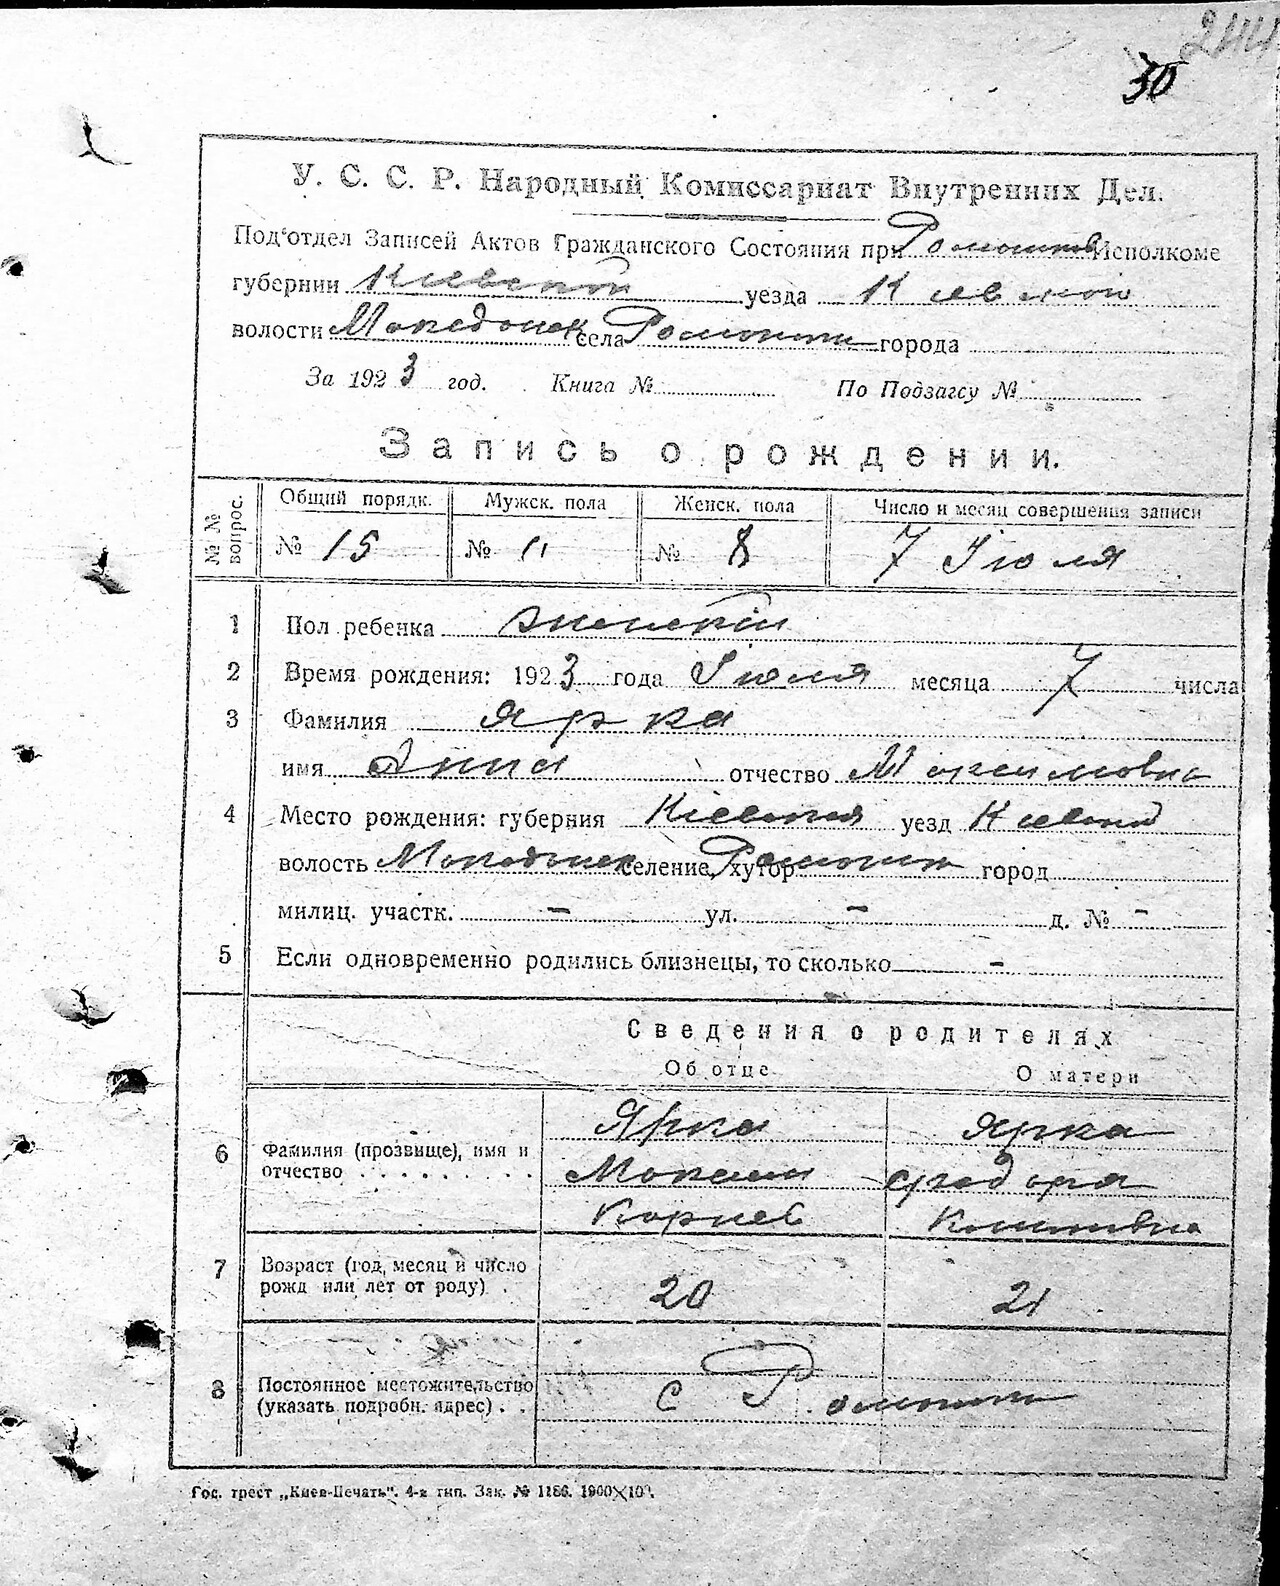 244
30
У. С. С. Р. Народный Комиссариат Внутренних Дел.
Под'отдел Записей Актов Гражданского Состояния при Исполкоме
губернии Киевской уезда Киевской
волости Македонск села Ромашки города
За 1923 год. Книга № По Подзагсу №
Запись о рождении.
№ № вопрос. Общий порядк. Мужск. пола Женск. пола Число и месяц совершения записи
№ 15 № " № 8 7 Июля
1 Пол ребенка женскій
2 Время рождения: 1923 года Июля месяца 7 числа
3 Фамилия Ярка
имя Анна отчество Максимовна
4 Место рождения: губерния Кіевская уезд Киевский
волость Македонск селение, хутор Ромашки город
милиц. участк. – ул. – д. № –
5 Если одновременно родились близнецы, то сколько –
Сведения о родителях
Об отце О матери
6 Фамилия (прозвище), имя и отчество . . . . . . . . .
Ярка Ярка
Максим
Корнев
7 Возраст (год, месяц и число рожд или лет от роду) .
20 21
8 Постоянное местожительство (указать подробн. адрес) . .
С Ромашки
Гос. трест „Киев-Печать“. 4-я тип. Зак. № 1186. 1900×100.